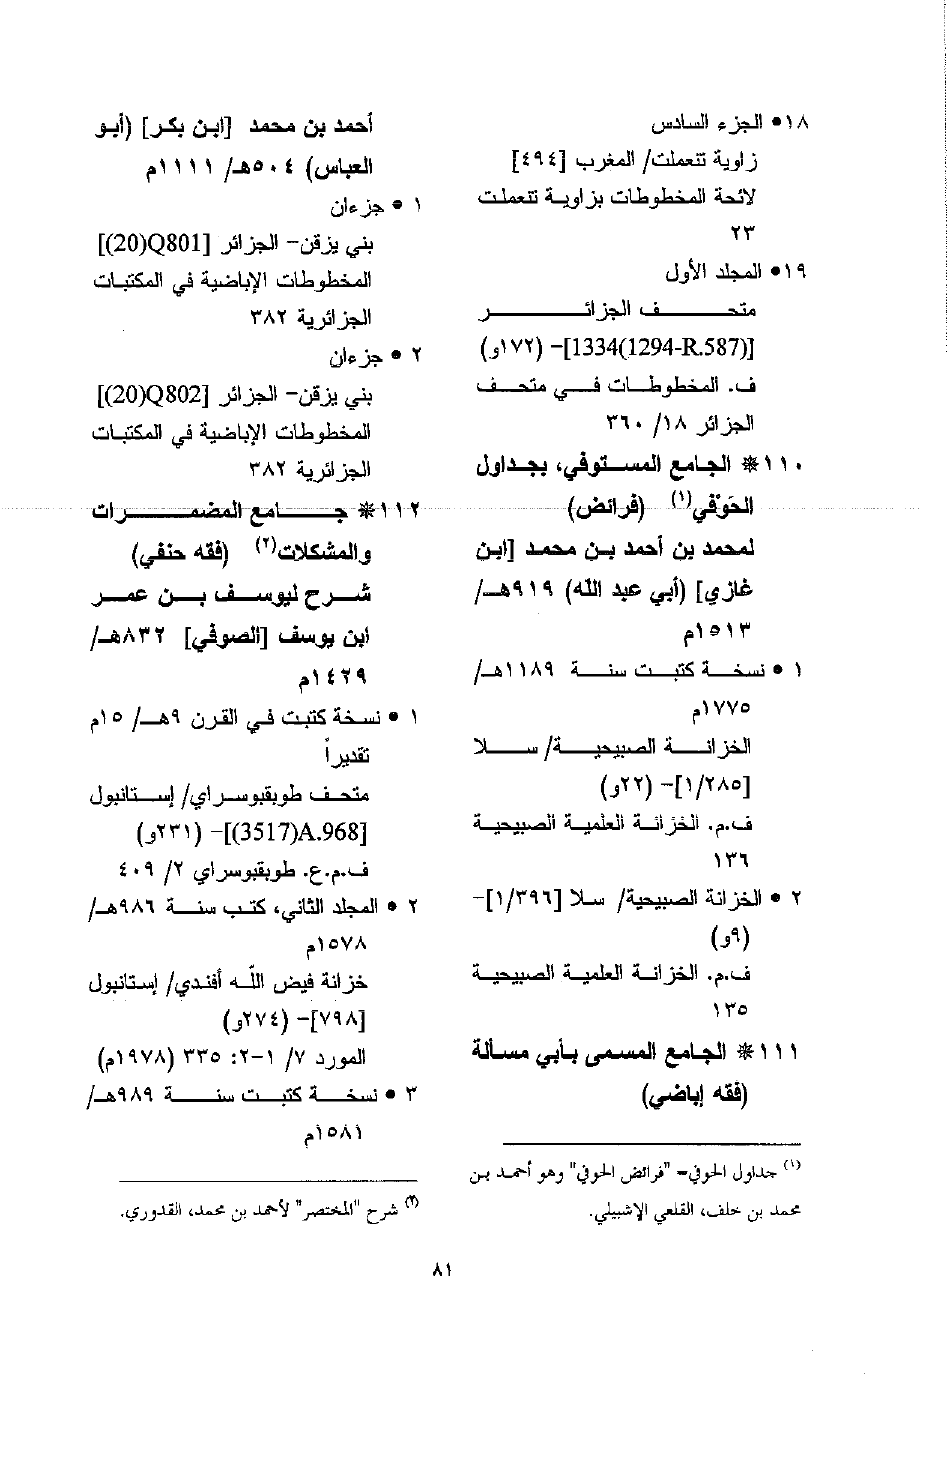 ١٨• الجزء السادس
زاوية تنعملت/ المغرب [٤٩٤]
لائحة المخطوطات بزاوية تنعملت
٢٣
١٩• المجلد الأول
متحف الجزائر
[1334(1294-R.587)]– (١٧٢و)
ف. المخطوطات في متحف
الجزائر ١٨/ ٣٦٠
١١٠* الجامع المستوفي، بجداول
الحَوْفي(١) (فرائض)
لمحمد بن أحمد بن محمد [ابن
غازي] (أبي عبد الله) ٩١٩هـ/
١٥١٣م
١ • نسخة كتبت سنة ١١٨٩هـ/
١٧٧٥م
الخزانة الصبيحية/ سلا
[١/٢٨٥]– (٢٢و)
ف.م. الخزانة العلمية الصبيحية
١٣٦
٢ • الخزانة الصبيحية/ سلا [١/٣٩٦]–
(٩و)
ف.م. الخزانة العلمية الصبيحية
١٣٥
١١١* الجامع المسمى بأبي مسألة
(فقه إباضي)
(١) جداول الحوفي= "فرائض الحوفي" وهو أحمد بن
محمد بن خلف، القلعي الإشبيلي.
أحمد بن محمد [ابن بكر] (أبو
العباس) ٥٠٤هـ/ ١١١١م
١ • جزءان
بني يزقن– الجزائر [Q801(20)]
المخطوطات الإباضية في المكتبات
الجزائرية ٣٨٢
٢ • جزءان
بني يزقن– الجزائر [Q802(20)]
المخطوطات الإباضية في المكتبات
الجزائرية ٣٨٢
١١٢* جامع المضمرات
والمشكلات(٢) (فقه حنفي)
شرح ليوسف بن عمر
ابن يوسف [الصوفي] ٨٣٢هـ/
١٤٢٩م
١ • نسخة كتبت في القرن ٩هـ/ ١٥م
تقديراً
متحف طوبقبوسراي/ إستانبول
[A.968(3517)]– (٢٣١و)
ف.م.ع. طوبقبوسراي ٢/ ٤٠٩
٢ • المجلد الثاني، كتب سنة ٩٨٦هـ/
١٥٧٨م
خزانة فيض اللّه أفندي/ إستانبول
[٧٩٨]– (٢٧٤و)
المورد ٧/ ١–٢: ٣٣٥ (١٩٧٨م)
٣ • نسخة كتبت سنة ٩٨٩هـ/
١٥٨١م
(٢) شرح "المختصر" لأحمد بن محمد، القدوري.
٨١